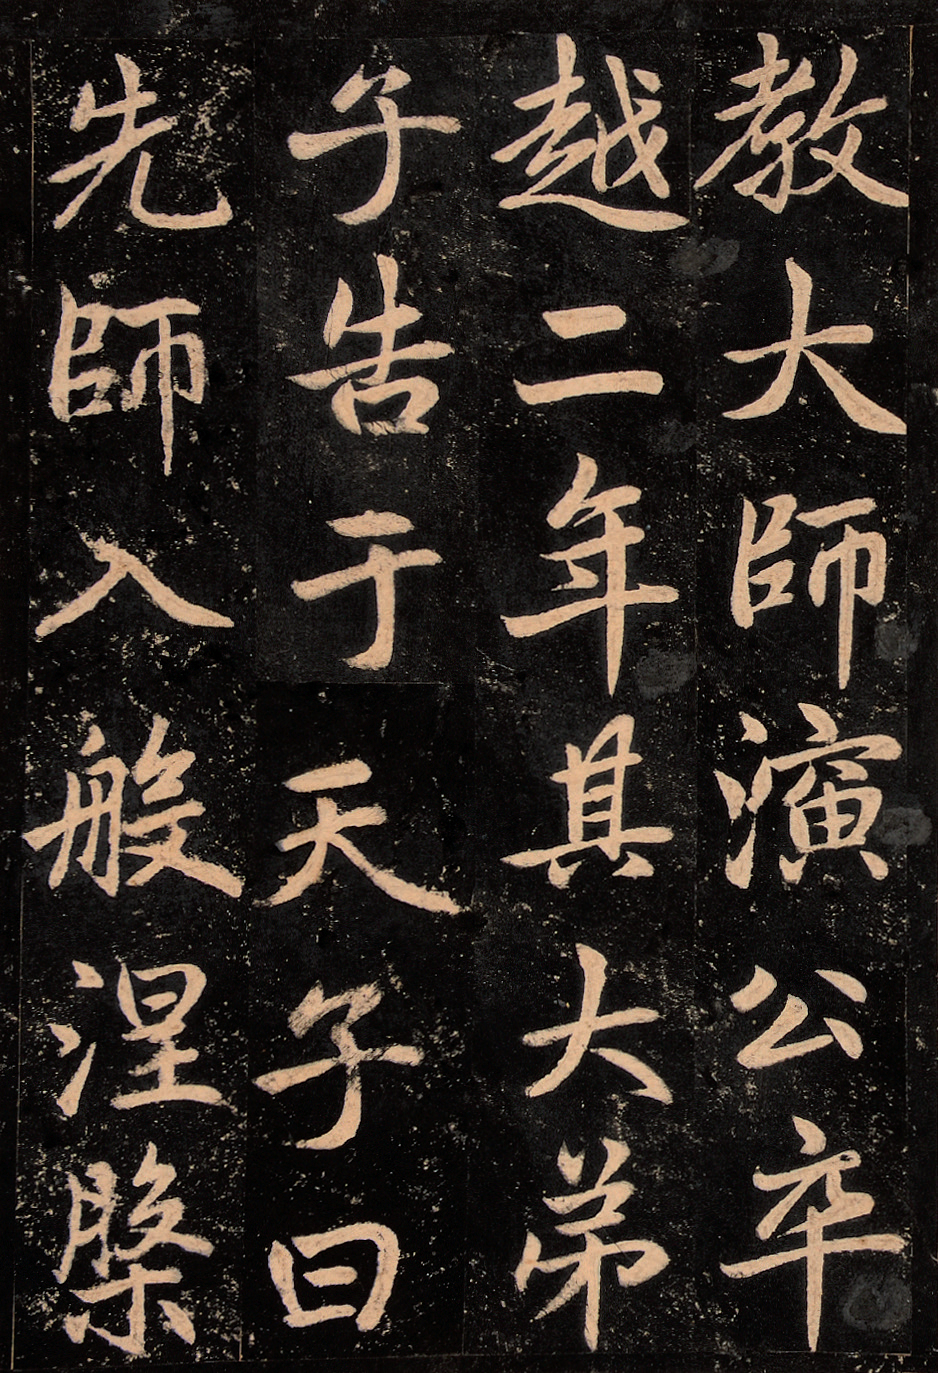 教大師演公卒
越二年具大弟
子告于天子曰
先師入般涅槃